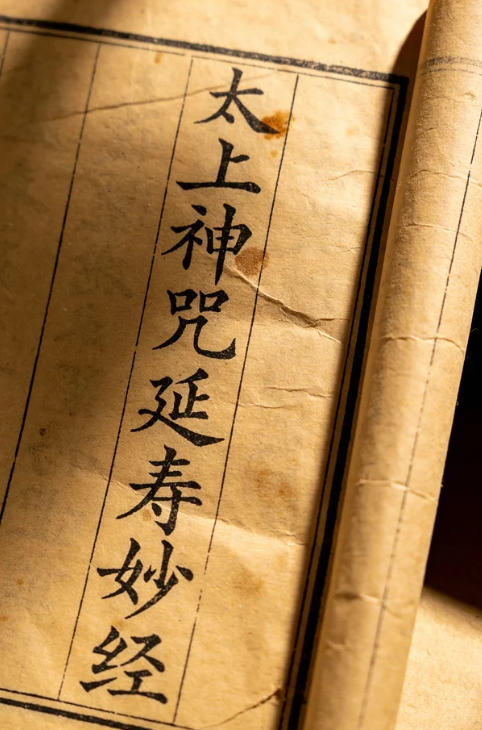 太上神咒延寿妙经